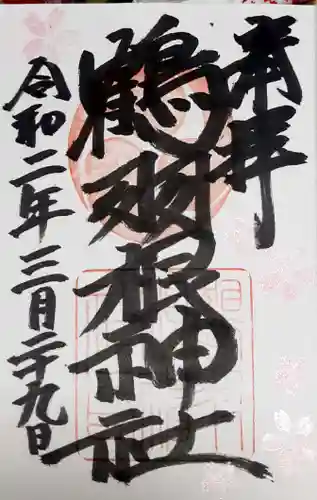 奉拝
鶴羽根神社
令和二年三月二十九日